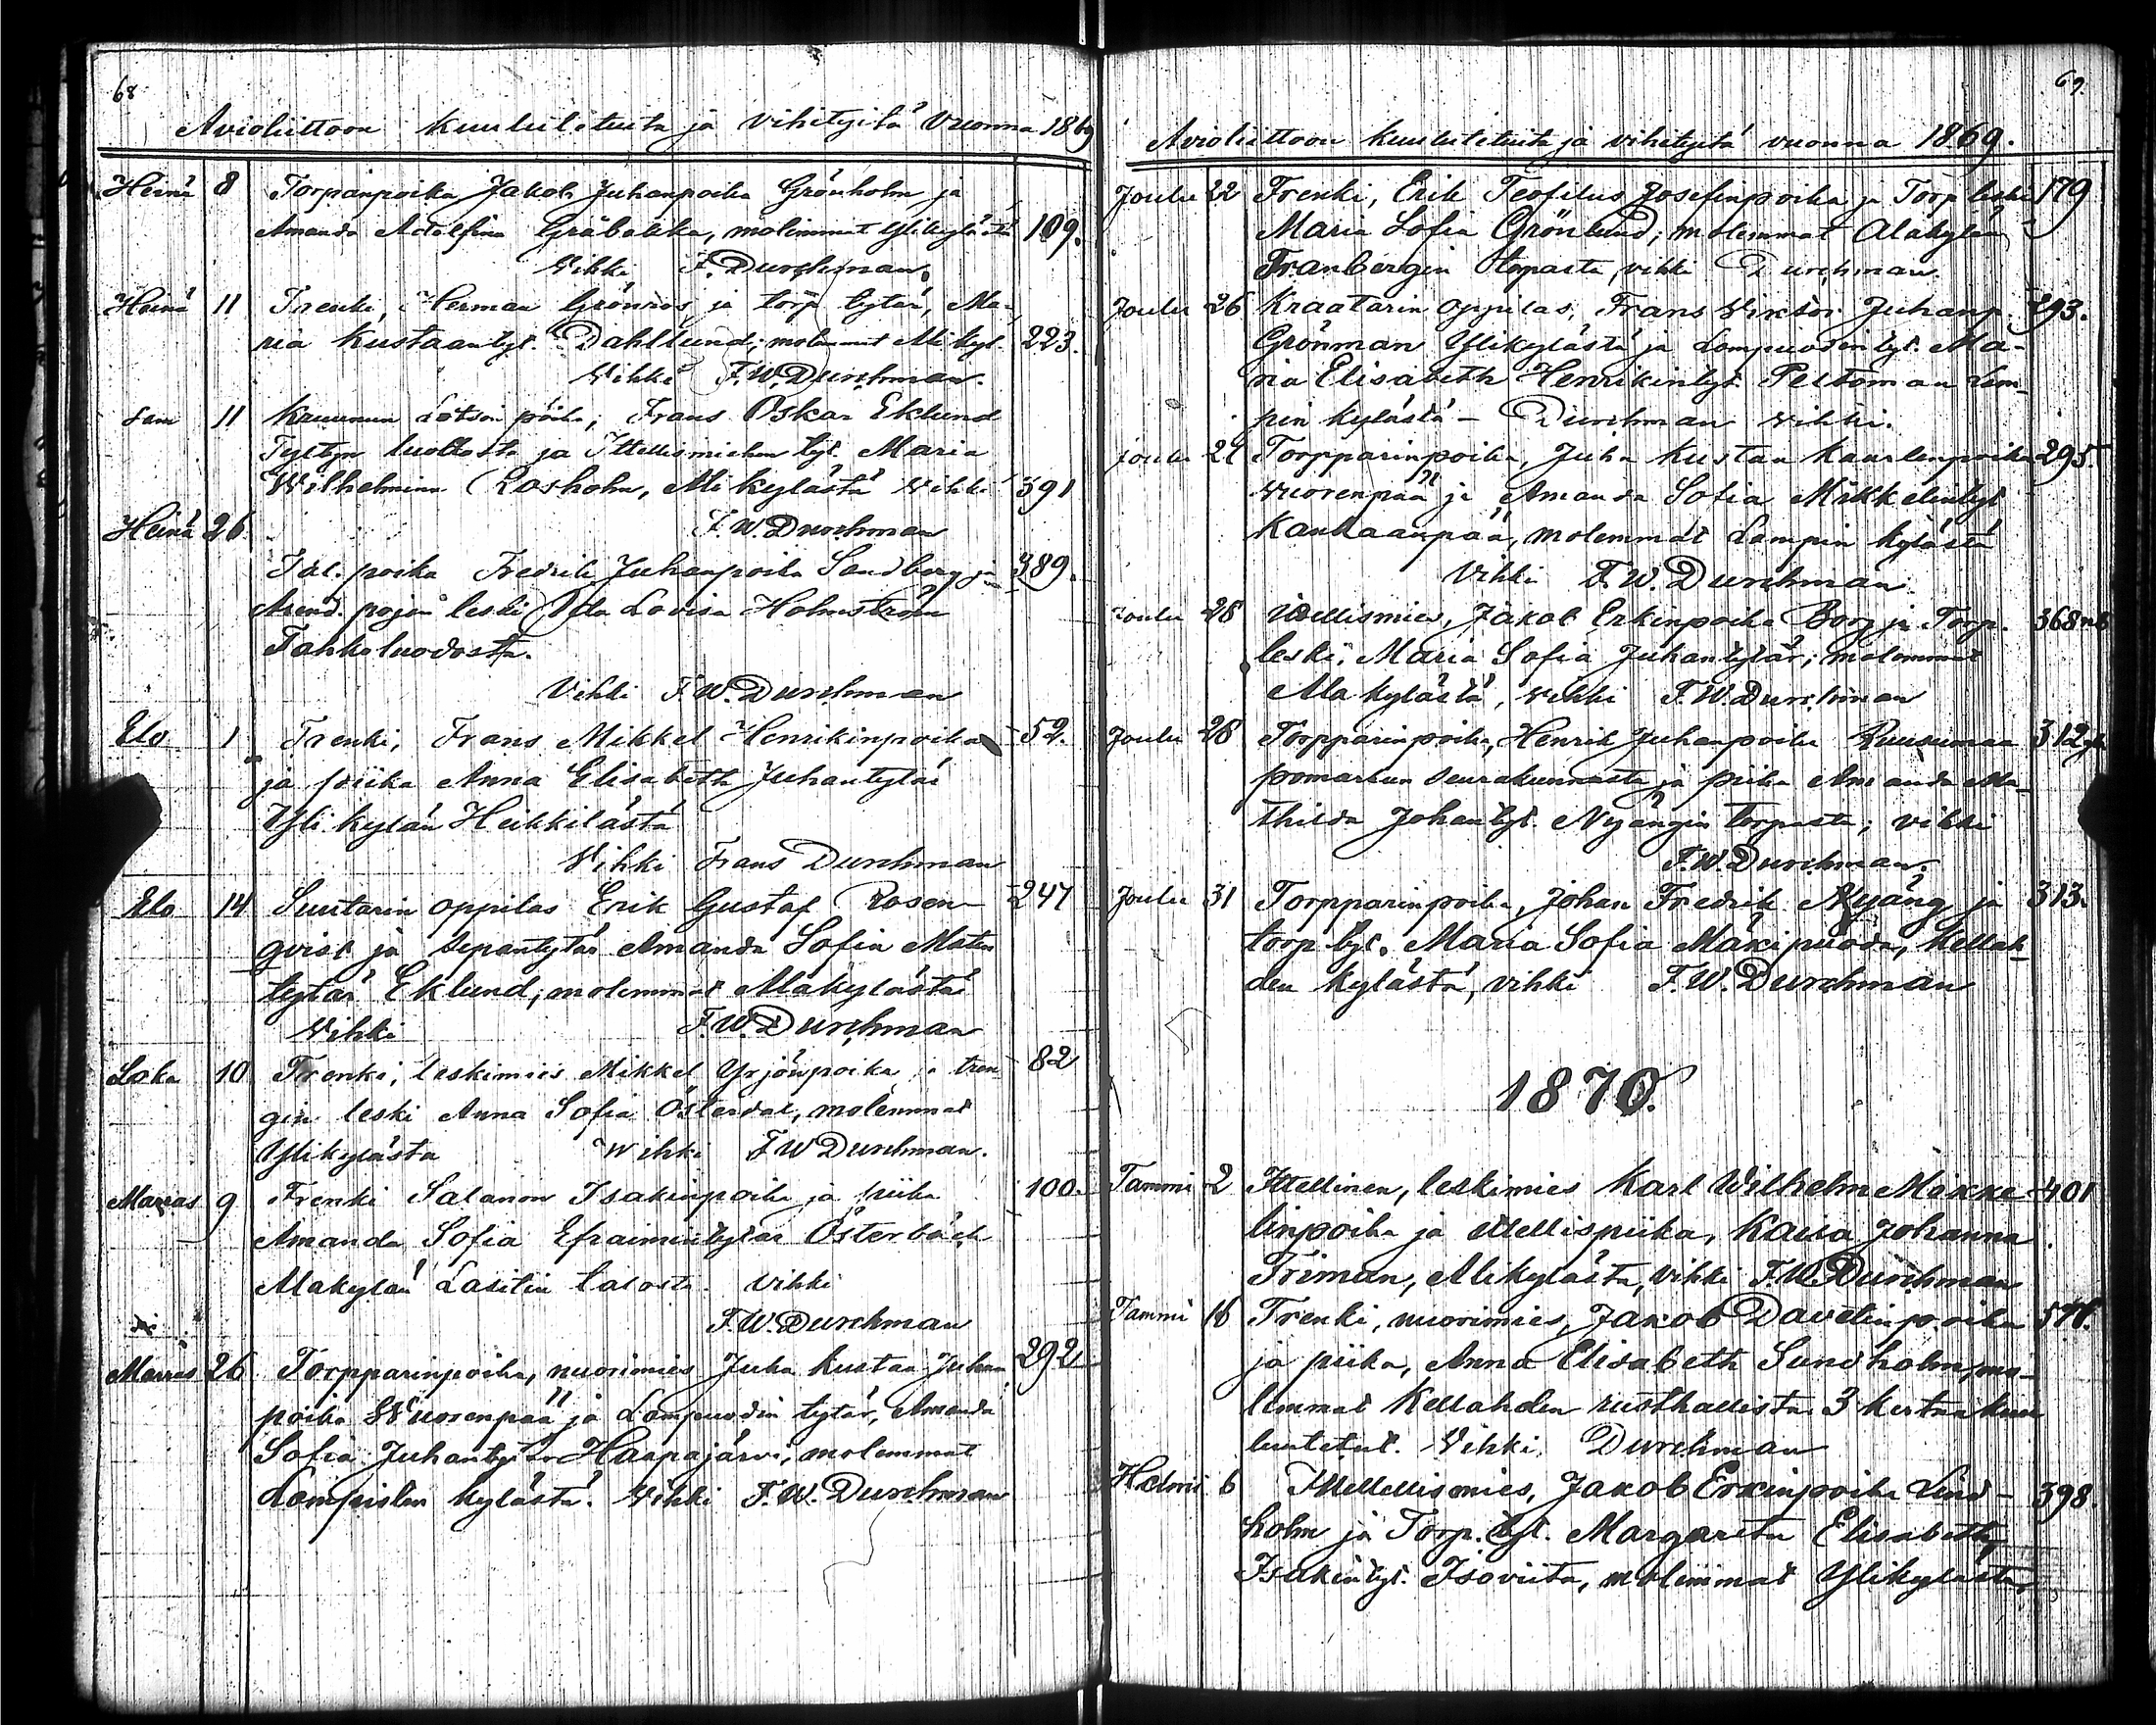 68
Avioliittoon kuulutetuita ja vihityitä vuonna 1869
Heinä 8 Torpanpoika Jakob Juhanpoika Grönholm ja
Amanda Adolfina Gräbakka, molemmat Ylikylästä 109.
Vihki F. Durchman.
Heinä 11 Trenki, Herman Grönros, ja torp tytär, Ma-
ria Kustaantyt. Dahllund; molemmat Alikyl. 223.
Vihki F.W. Durchman.
Sam 11 Kruunun Lotsin poika, Frans Oskar Eklund
luotosta ja Ittellismiehen tyt. Maria
Wilhelmina Rosholm, Alikylästä Vihki 391
Heinä 26 F.W. Durchman
Tal. poika Fredrik Juhanpoika Sandberg ja 389.
Arend. pojan leski Ida Lovisa Holmström
Tahkoluodosta.
Vihki F.W. Durchman
Elo 1 Trenki, Frans Mikkel Henrikinpoika 52.
ja piika Anna Elisabeth Juhantytär
Yli kylän Heikkilästä
Vihki Frans Durchman
Elo 14 Suutarin oppilas Erik Gustaf Rosen- 247
qvist ja sepäntytär Amanda Sofia Matin
tytär Eklund, molemmat Alakylästä
Vihki F.W. Durchman
Loka 10 Trenki, leskimies Mikkel Yrjönpoika ja tren- 82
gin leski Anna Sofia Österdal, molemmat
Ylikylästä Wihki F W Durchman.
Marras 9 Trenki Salamon Isakinpoika ja piika 100.
Amanda Sofia Efraimintytär Österback
Alakylän Lasitin talosta. Vihki
F.W. Durchman
Marras 26 Torpparinpoika, nuorimies Juha Kustaa Juhan 292
poika Wuorenpää ja Lampuodin tytär, Amanda
Sofia Juhantytär Haapajärvi, molemmat
Lampisten kylästä. Vihki F.W. Durchman
69.
Avioliittoon kuulutetuita ja vihityitä vuonna 1869.
Joulu 22 Trenki, Erik Teofilus Josefinpoika ja Torp leski 179
Maria Sofia Grönlund; molemmat Alakylän
Franbergin torpasta, vihki Durchman.
Joulu 26 Kraatarin oppilas, Frans Viktor Juhanp. 193.
Grönman Ylikylästä ja Lampuodin tyt. Ma-
ria Elisabeth Henrikintyt. Peltoman Lam-
pin kylästä - Durchman vihki.
Joulu Torpparinpoika, Juha Kustaa Kaarlenpoika 295.
Vuorenpää ja Amanda Sofia Mikkelintyt
Kankaanpää, molemmat Lampin kylästä
Vihki F.W. Durchman
Joulu 28 Ittellismies, Jakob Erkinpoika Borg ja Torp. 368
leski, Maria Sofia Juhantytär; molemmat
Ala kylästä, vihki F.W. Durchman
Joulu 28 Torpparinpoika, Henrik Juhanpoika Ruusumaa 312
pomarkun seurakunnasta ja piika Amanda Ma-
thilda Johantyt. Nyängin torpasta; vihki
F.W. Durchman.
Joulu 31 Torpparinpoika, Johan Fredrik Nyäng ja 313.
torp. tyt. Maria Sofia Mäkipuoda, Kellah-
den kylästä, vihki F.W. Durchman
1870.
Tammi 2 Ittellinen, leskimies Karl Wilhelm Mikke- 401
linpoika ja ittellispiika, Kaisa Johanna
Friman, Alikylästä, Vihki F.W. Durchman
Tammi 16 Trenki, nuorimies, Jakob Davetinpoika
ja piika, Anna Elisabeth Sundholm, mo-
lemmat Kellahden rusthallista 3 kertaa kuu
lutetut. Vihki. Durchman
Helmi 6 Ittellellismies, Jakob Erkinpoika Lind- 398.
holm ja Torp. tyt. Margareta Elisabeth,
Isakintyt. Isoviita, molemmat Ylikylästä